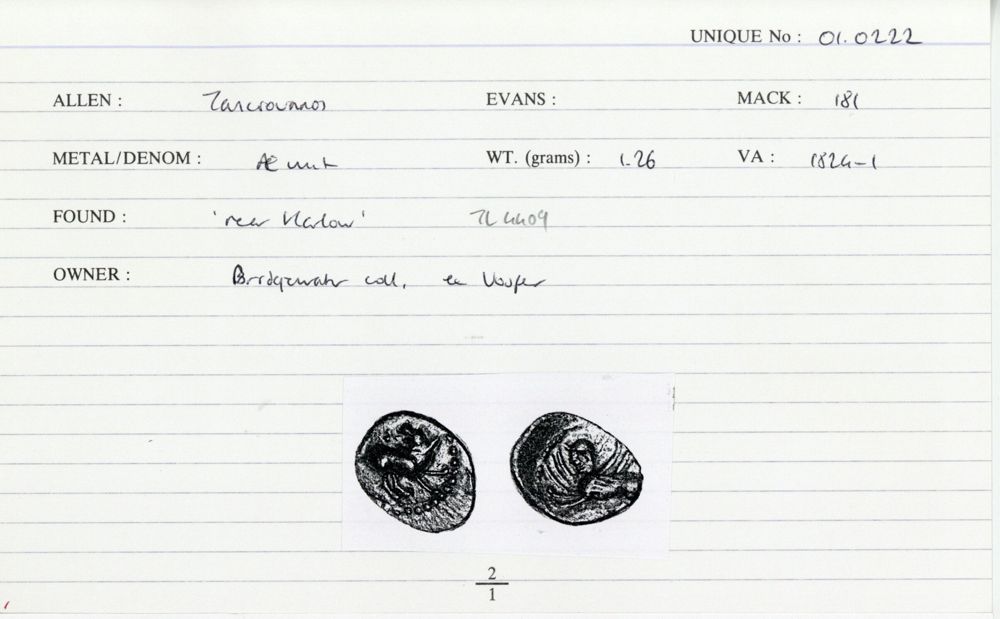 UNIQUE No : 01.0222
ALLEN : Tasciovanos EVANS : MACK : 181
METAL/DENOM : Æ unit WT. (grams) : 1.26 VA : 1824-1
FOUND : 'near Harlow' TL 4409
OWNER : Bridgewater coll. ex Vosper
2
1